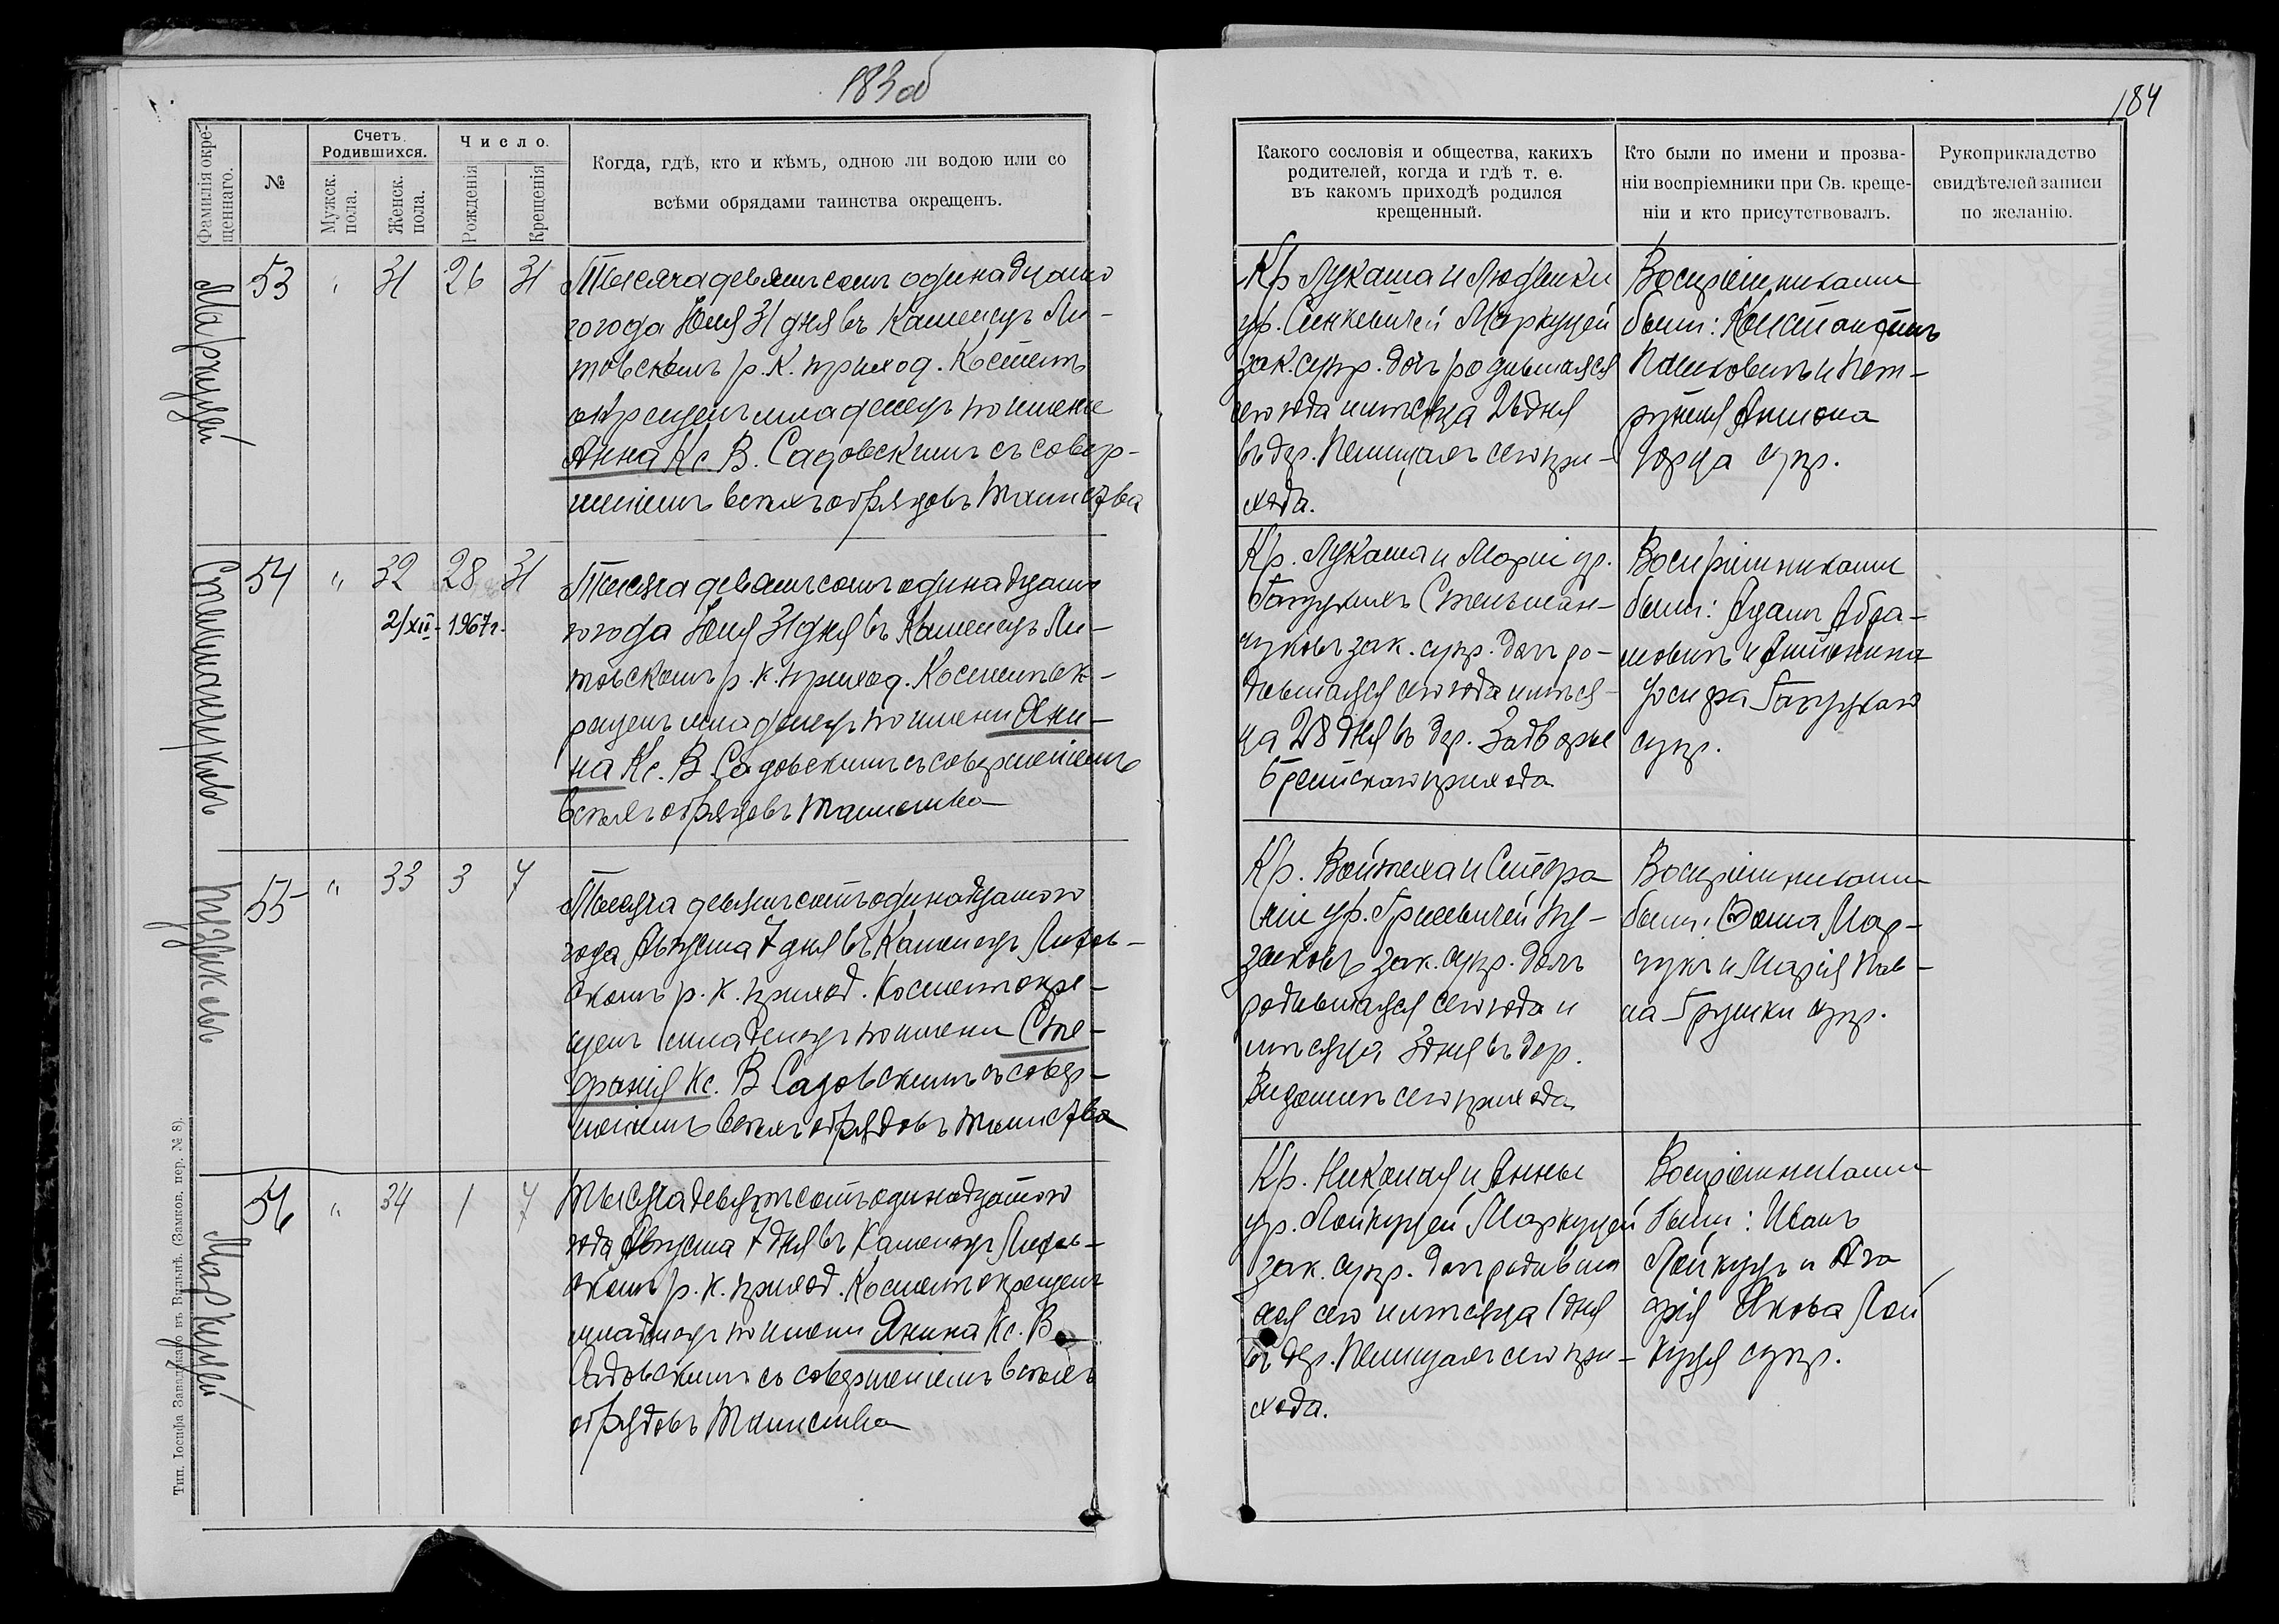 183об
184
Фамилія окре-
щеннаго.
№
Счетъ
Родившихся.
Мужск.
пола.
Женск.
пола.
Число.
Рожденія
Крещенія
Когда, гдѣ, кто и кѣмъ, одною ли водою или со
всѣми обрядами таинства окрещенъ.
Какого сословія и общества, какихъ
родителей, когда и гдѣ т. е.
въ какомъ приходѣ родился
крещенный.
Кто были по имени и прозва-
ніи воспріемники при Св. креще-
ніи и кто присутствовалъ.
Рукоприкладство
свидѣтелей записи
по желанію.
Маркуцей
53 " 31 26 31
Тысяча девятьсотъ одинадцато
го года Юля 31 дня въ Каменецъ Ли-
товскомъ р. К. приход. Костелѣ
окрещенъ младенецъ по имени
Анна Кс. В. Садовскимъ съ совер-
шеніемъ всѣхъ обрядовъ Таинства
Кр Лукаша и Людвики
ур. Синкевичей Маркуцей
зак. супр. дочь родившаяся
сего года и мѣсяца 26 дня
въ дер. Пелищахъ сего при-
хода.
Воспріемниками
были: Константинъ
и Пет-
Антона
супр.
Стельманчуковъ
54 " 32 28 31
2/XII - 1967г.
Тысяча девятьсотъ одинадцато
го года Юля 31 дня въ Каменецъ Ли-
товскомъ р. к. приход. Костелѣ ок-
рещенъ младенецъ по имени Яни-
на Кс. В. Садовскимъ съ совершеніемъ
всѣхъ обрядовъ Таинства
Кр. Лукаша и Маріи ур.
Стельман-
чуковъ зак. супр. дочь ро-
дившаяся сего года и мѣся-
ца 28 дня въ дер. Задворье
Брестскаго прихода
Воспріемниками
были: Адамъ Абра-
мовичъ и Антонина
Юсифа
супр.
Пузыковъ
55 " 33 3 7
Тысяча девятьсотъ одинадцатого
года Августа 7 дня въ Каменецъ Литов-
скомъ р. к. приход. Костелѣ окре-
щенъ младенецъ по имени Сте-
фанія Кс. В. Садовскимъ съ совер-
шеніемъ всѣхъ обрядовъ Таинства
Кр. Войтеха и Стефа
ніи ур. Гриневичей Пу-
зыковъ зак. супр. дочь
родившаяся сего года и
мѣсяца 3 дня въ дер.
сего прихода
Воспріемниками
были: Фома Мар-
чукъ и Марія Пав-
ла Грушки супр.
Маркуцей
56 " 34 1 7
Тысяча девятьсотъ одинадцатого
года Августа 7 дня въ Каменецъ Литов-
скомъ р. к. приход. Костелѣ окрещенъ
младенецъ по имени Янина Кс. В.
Садовскимъ съ совершеніемъ всѣхъ
обрядовъ Таинства
Кр. Николая и Анны
ур. Лойкуцей Маркуцей
зак. супр. дочь родивша
аяся сего и мѣсяца 1 дня
въ дер. Пелищахъ сего при-
хода.
Воспріемниками
были: Иванъ
Лойкуць и Ага
фія Якова Лой
куця супр.
Тип. Іосифа Завадзкаго въ Вильнѣ. (Замков. пер. № 8).